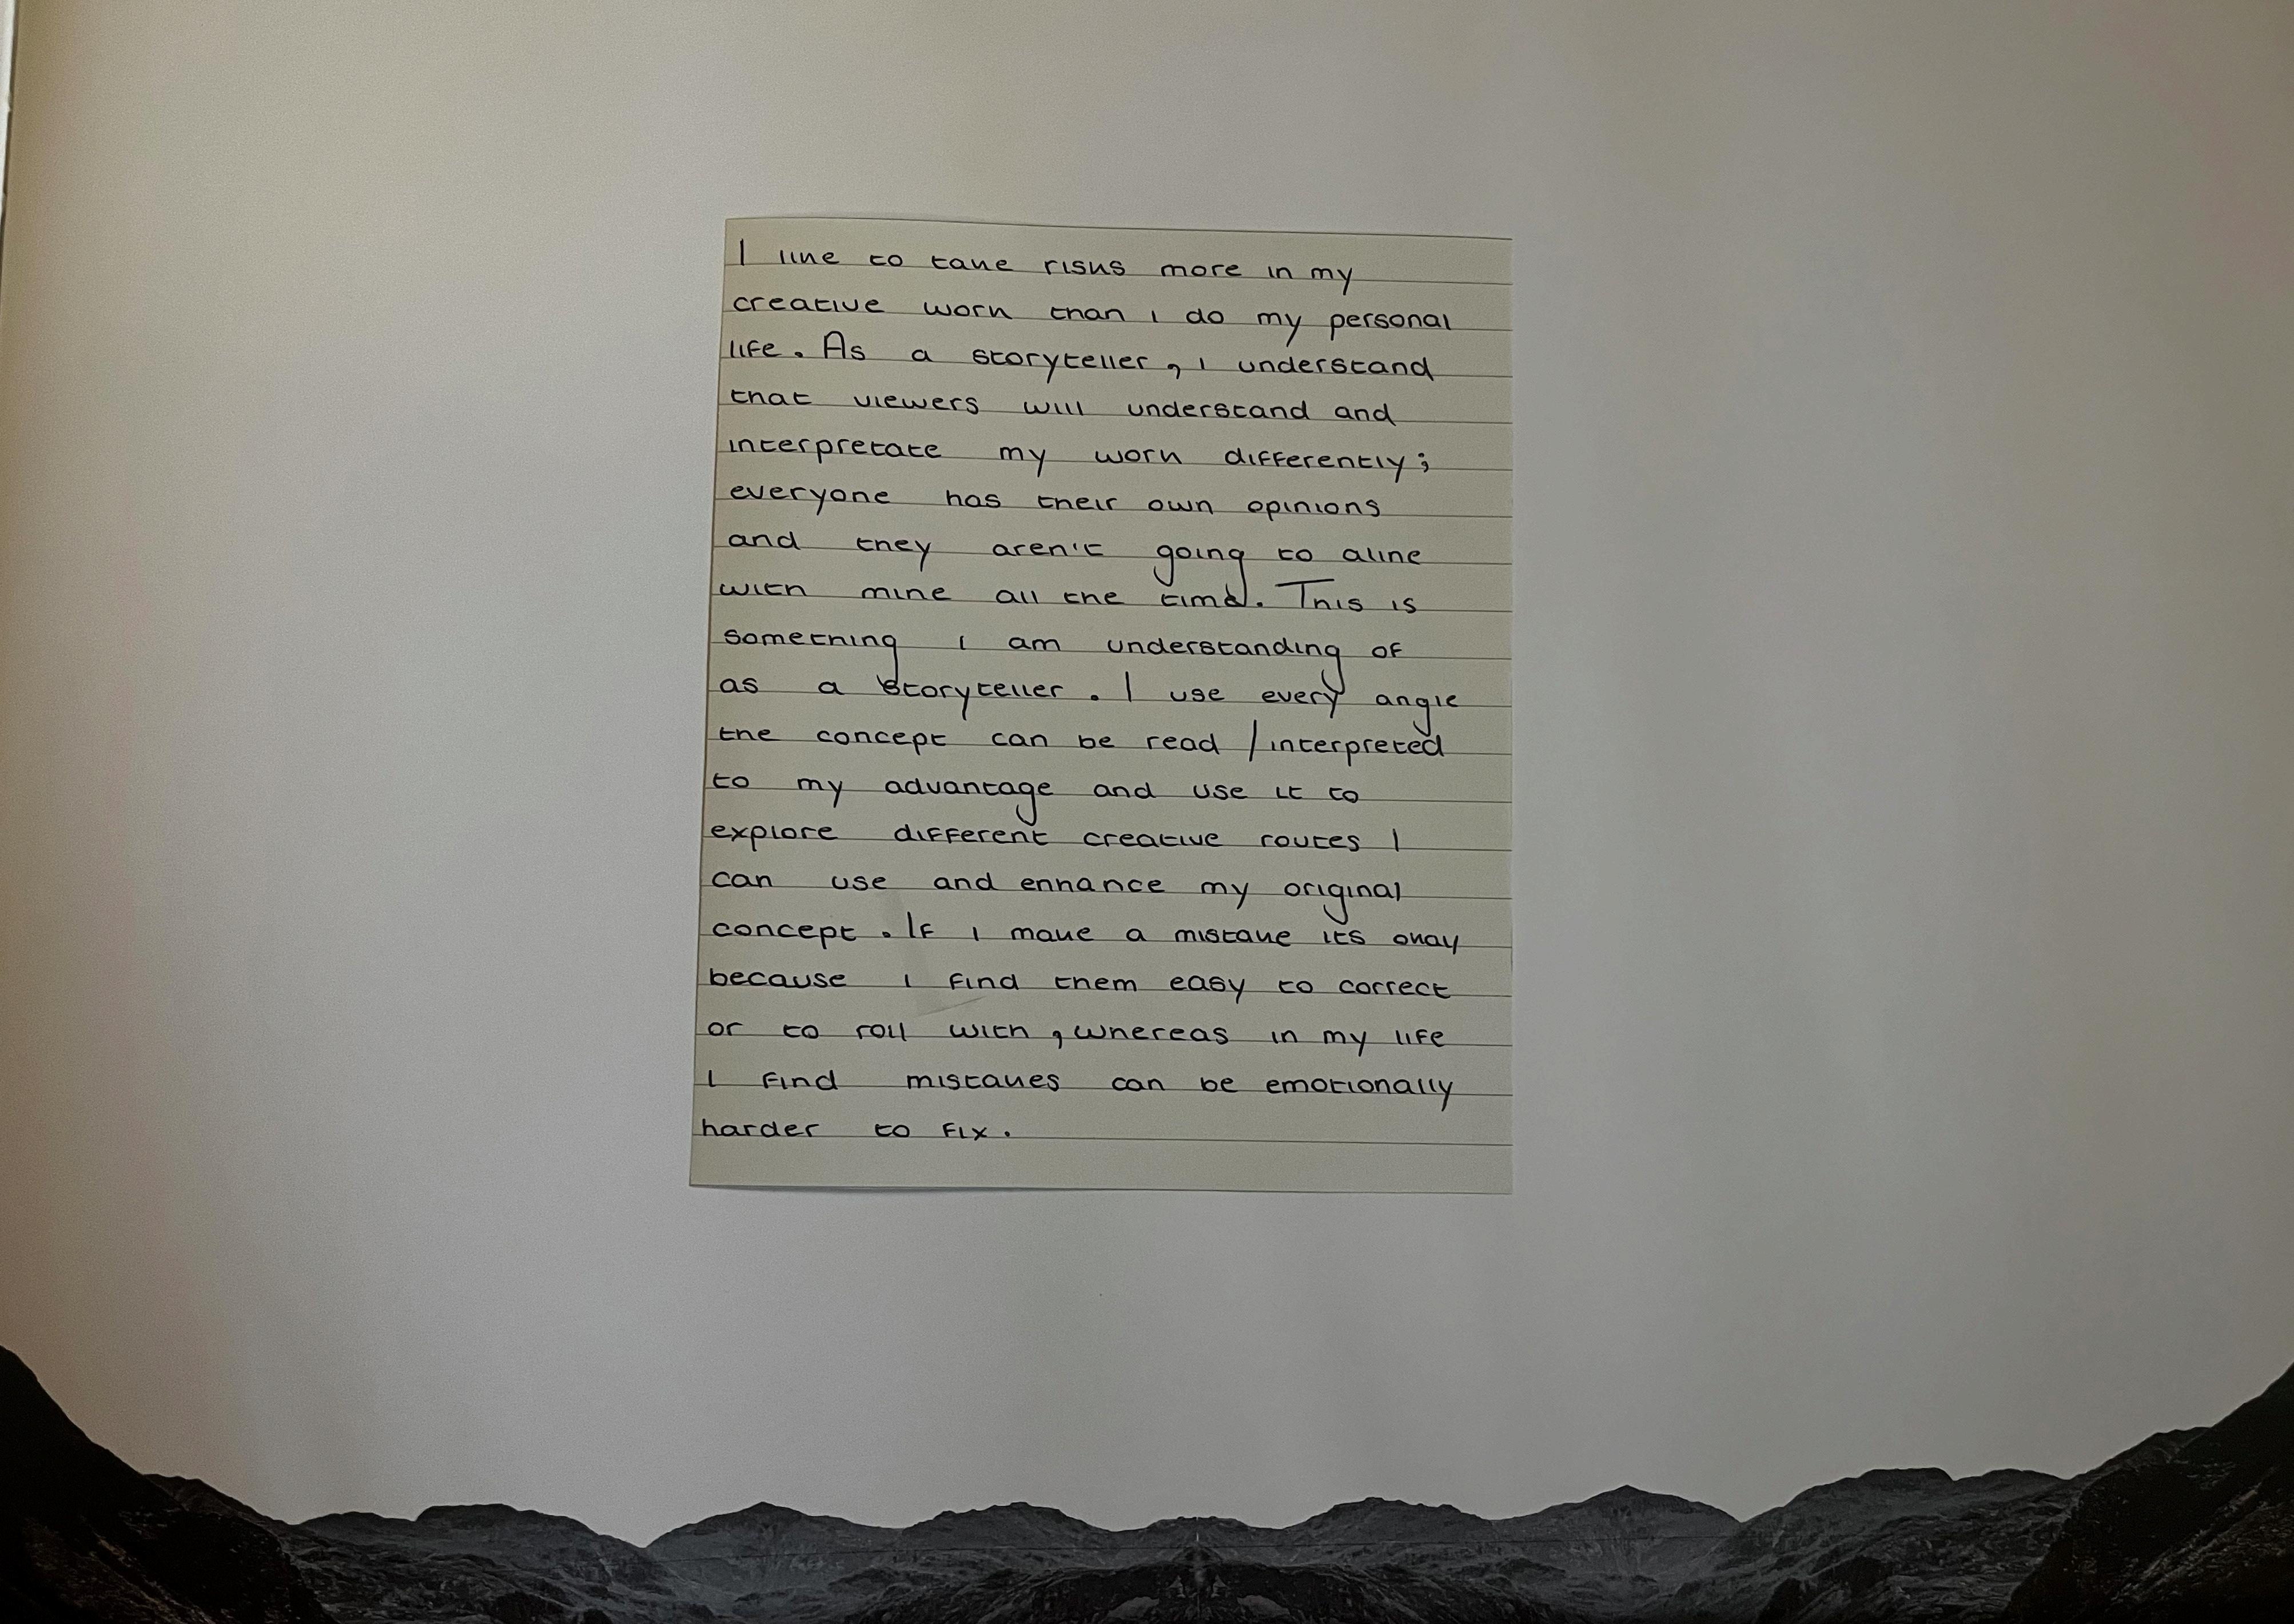 I like to take risks more in my
creative work than i do my personal
life. As a storyteller, i understand
that viewers will understand and
interpretate my work differently;
everyone has their own opinions
and they aren't going to aline
with mine all the time. This is
something i am understanding of
as a storyteller. I use every angle
the concept can be read / interpreted
to my advantage and use it to
explore different creative routes I
can use and enhance my original
concept. If i make a mistake its okay
because i find them easy to correct
or to roll with, whereas in my life
I find mistakes can be emotionally
harder to fix.